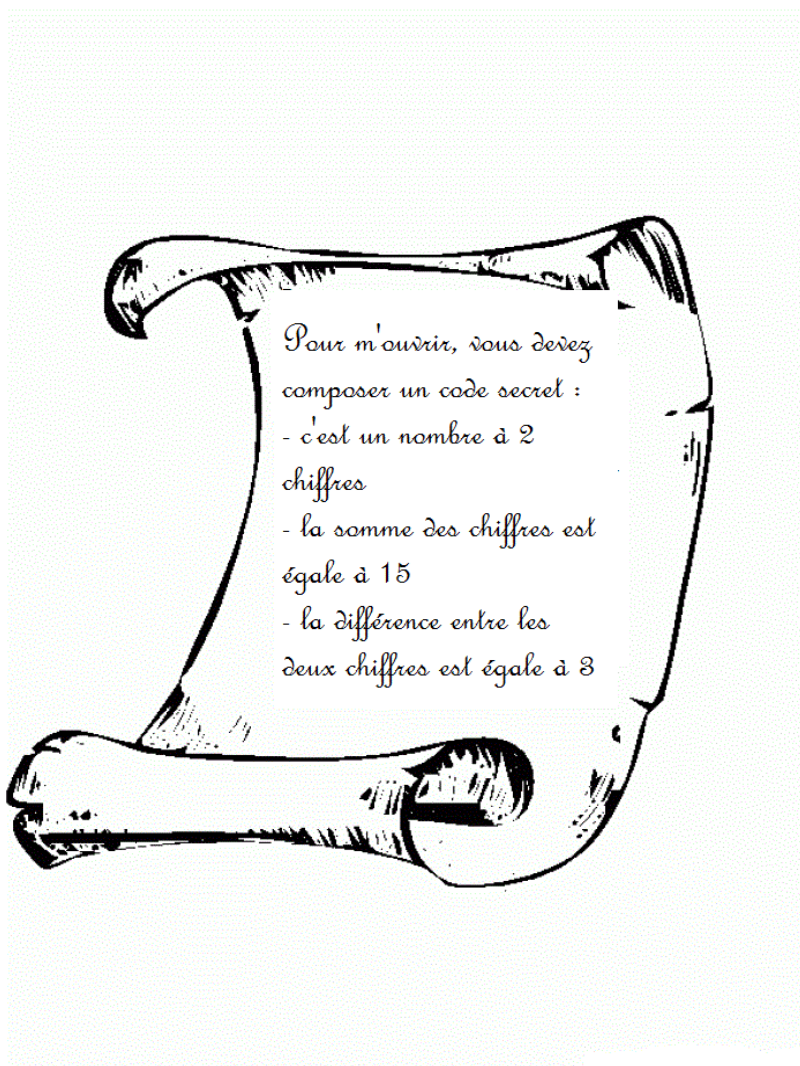 Pour m'ouvrir, vous devez
composer un code secret :
- c'est un nombre à 2
chiffres
- la somme des chiffres est
égale à 15
- la différence entre les
deux chiffres est égale à 3